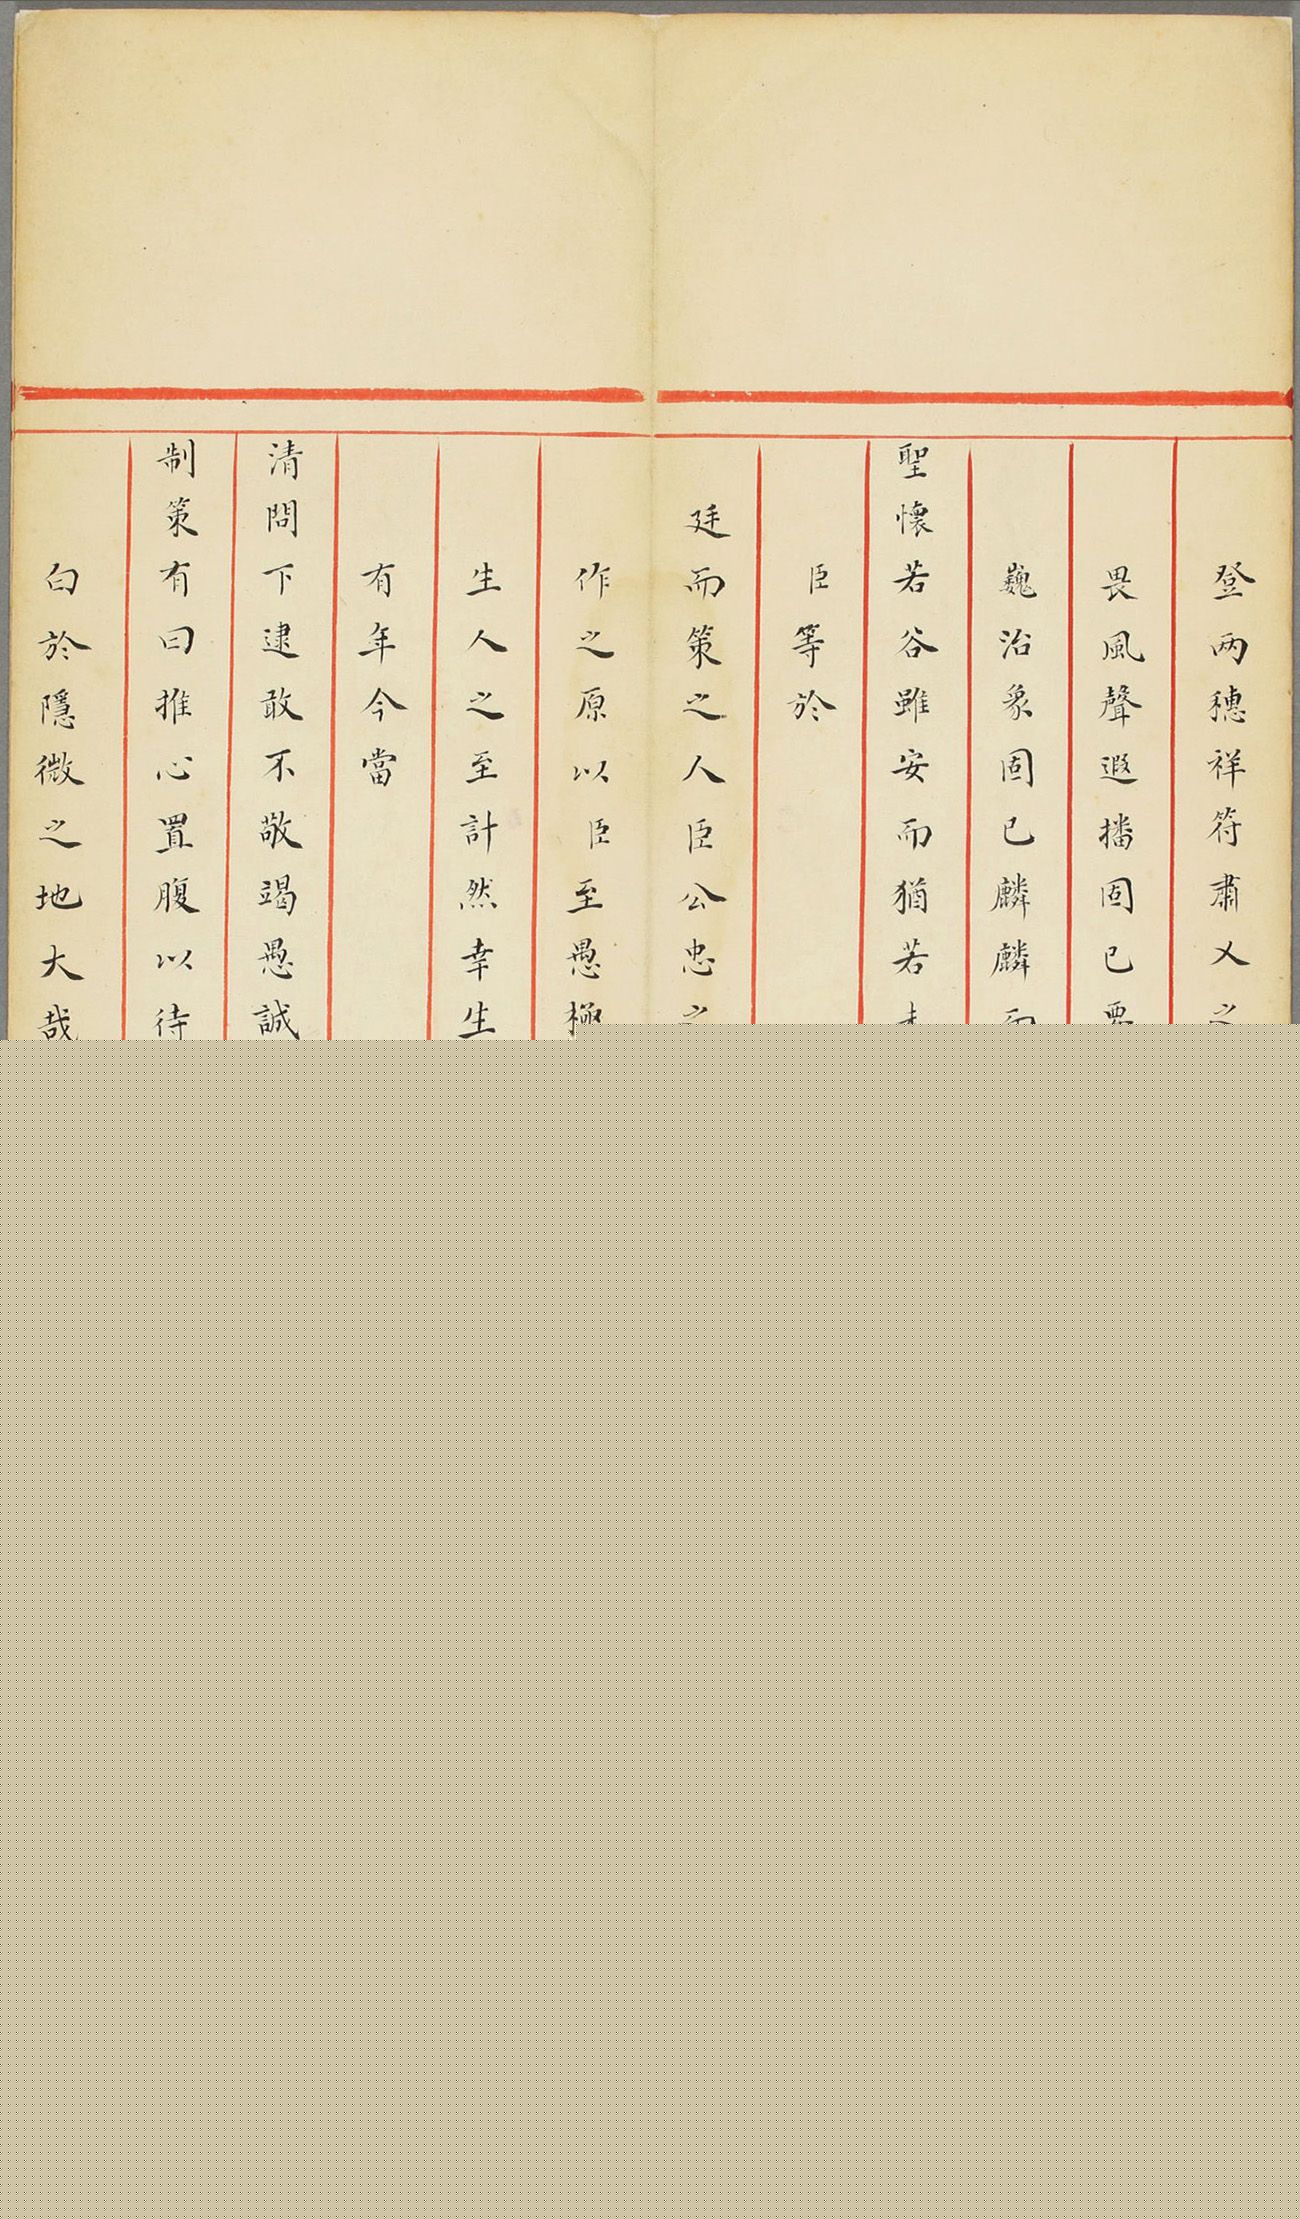 登两穗祥符肅乂之
畏風聲遐播固已
巍治象固已麟麟而
聖懷若谷雖安而猶若未
臣等於
廷而策之人臣公忠之
作之原以臣至愚極
生人之至計然幸生
有年今當
清問下逮敢不敬竭愚誠
制策有曰推心置腹以待
白於隱微之地大哉